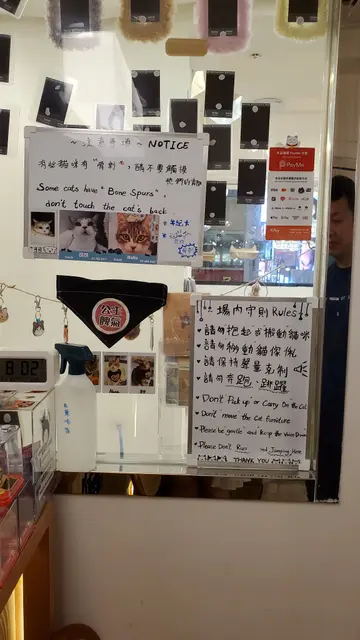 ~ 注意事項 ~ NOTICE
有些貓咪有"骨刺", 請不要觸摸
他們的背部
Some cats have "Bone Spurs",
don't touch the cat's back
PayMe
公主
脾氣
8 02
場內守則 Rules
♥ 請勿抱起或搬動貓咪
♥ 請勿移動貓傢俬
♥ 請保持聲量克制
♥ 請勿奔跑、跳躍
♥ Don't Pick up or Carry On the Cat
♥ Don't move the Cat Furniture
♥ Please be gentle and keep the Voice Down
♥ Please Don't Run and Jumping Here
THANK YOU